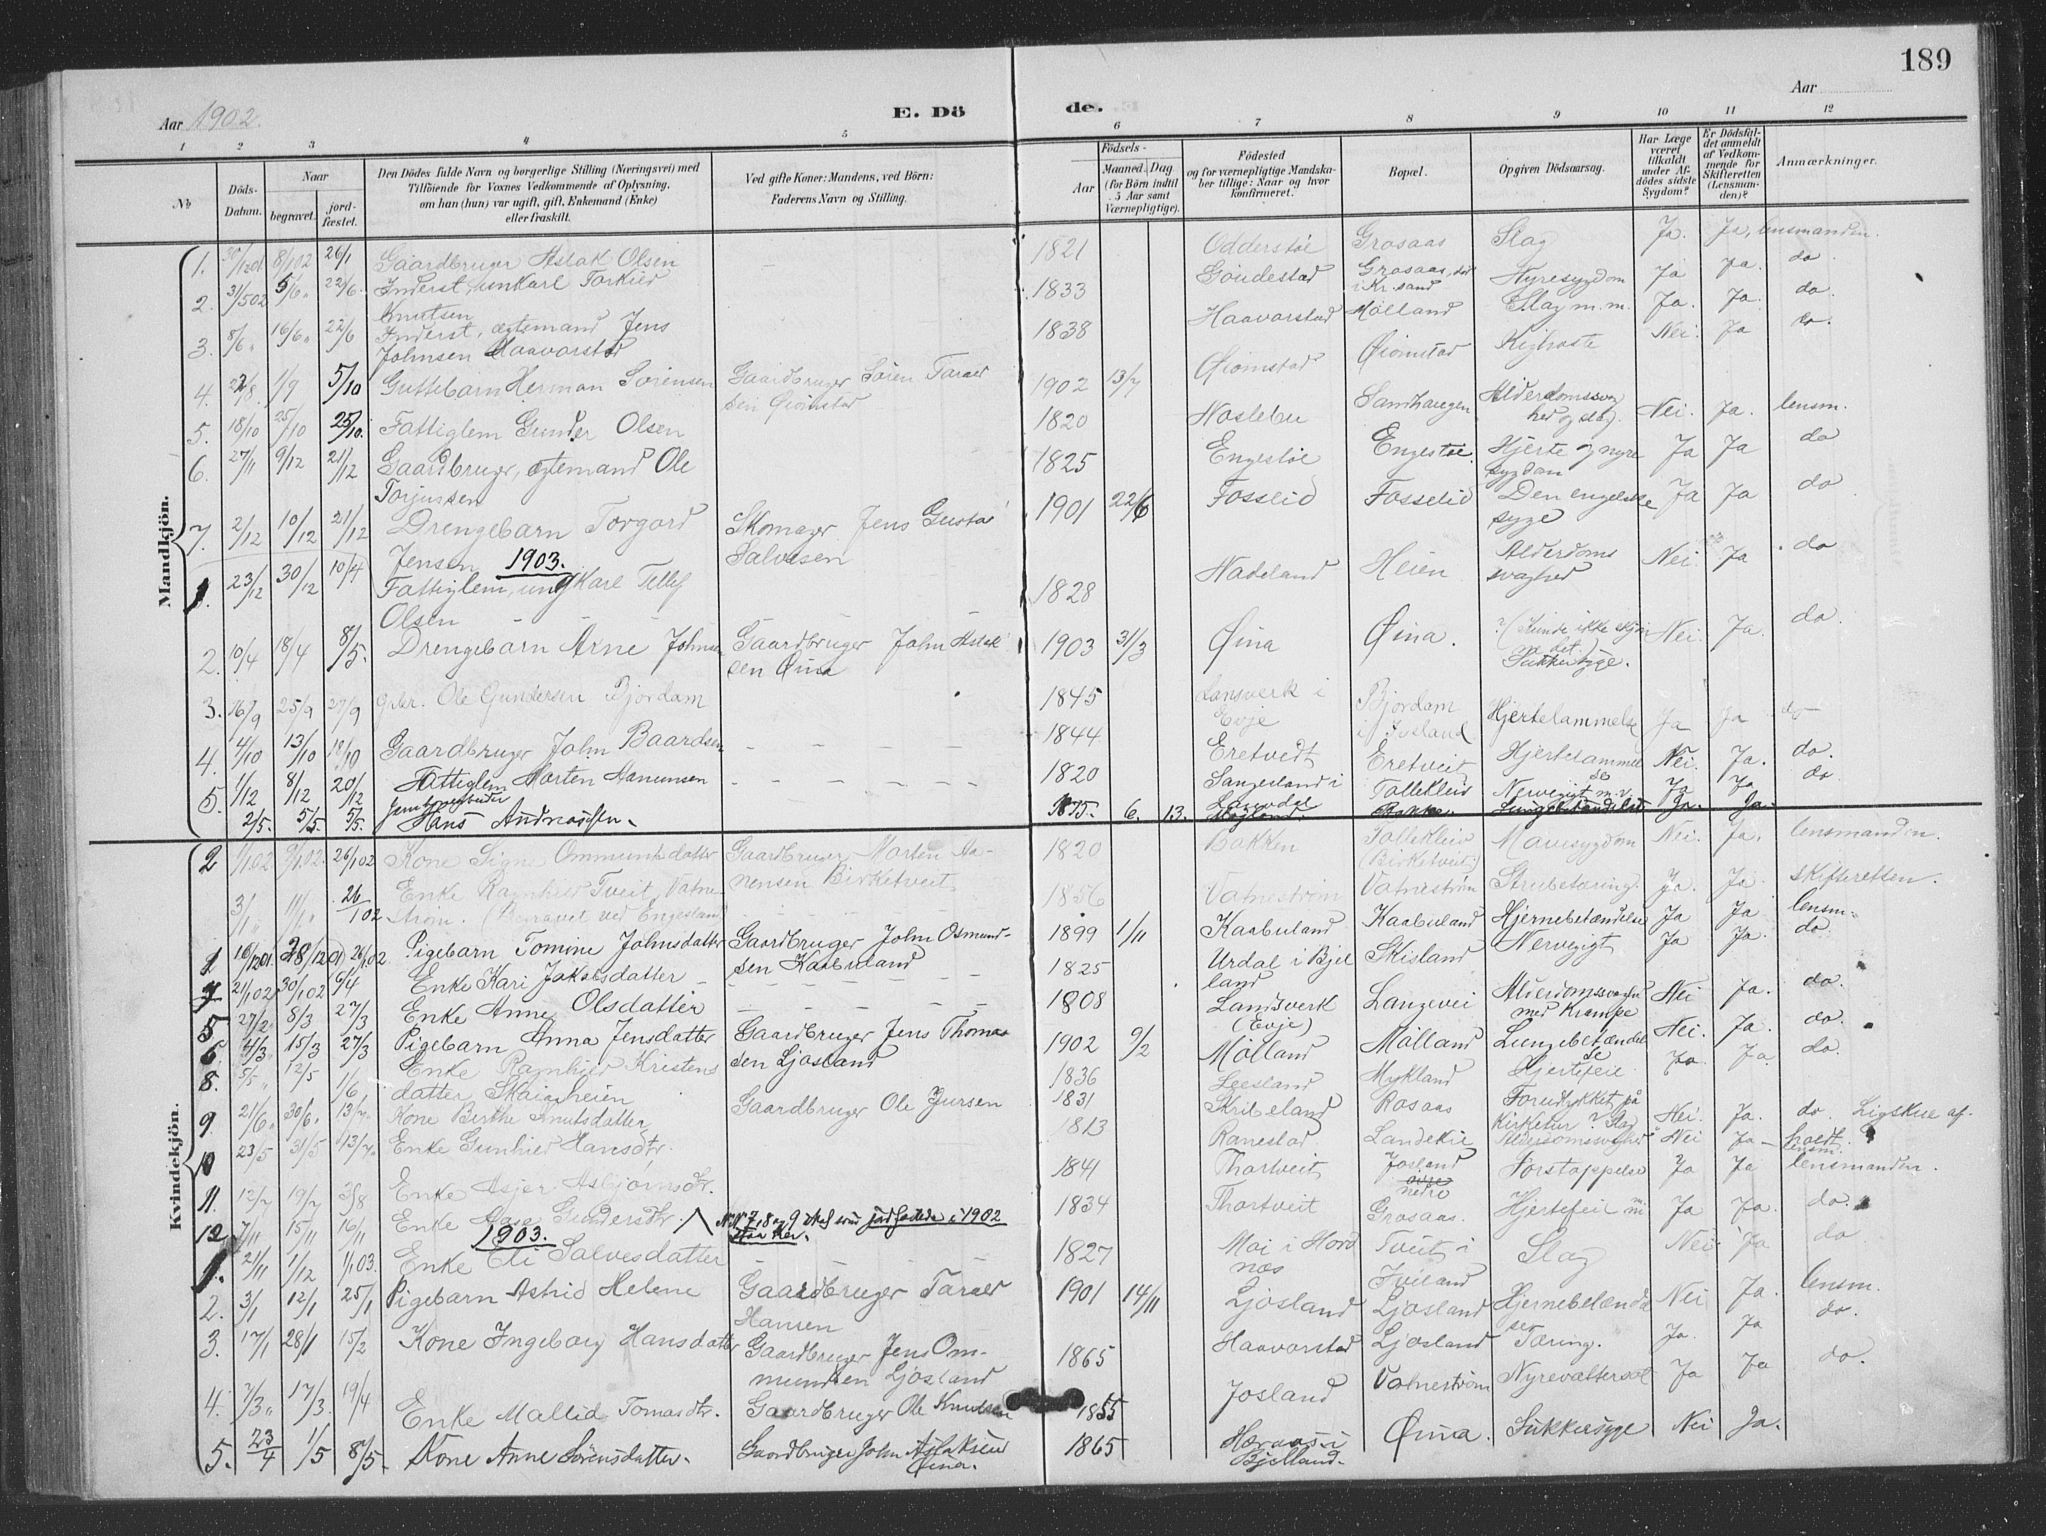 189
Aar 1902.
E. Dö
de.
Aar
1 2 3 4 5 6 7 8 9 10 11 12
No
Döds-Datum.
Naar
begravet.
jord-fæstet.
Den Dödes fulde Navn og borgerlige Stilling (Næringsvei) med
Tilföiende for Voxnes Vedkommende af Oplysning,
om han (hun) var ugift, gift, Enkemand (Enke)
eller fraskilt.
Ved gifte Koner: Mandens, ved Börn:
Faderens Navn og Stilling.
Födsels-
Aar
Maaned. Dag
(for Börn indtil
5 Aar samt
Værnepligtige).
Födested
og for værnepligtige Mandska-
ber tillige: Naar og hvor
konfirmeret.
Bopæl.
Opgiven Dödsaarsag.
Har Læge
været
tilkaldt
under Af-
dödes sidste
Sygdom?
Er Dödsfal-
det anmeldt
af Vedkom-
mende for
Skifteretten
(Lensman-
den)?
Anmærkninger.
Mandkjön.
1. 30/1201 8/102 26/1 Gaardbruger Aslak Olsen 1821 Odderstøe Grosaas Slag Ja. Ja, lensmanden.
2. 31/502 5/6 „ 22/6. Inderst, unkarl Torkild
Knutsen 1833 Goudestad Grosaas, død
i Kr.sand Nyresygdom Ja Ja. do
3. 8/6 „ 16/6 „ 22/6 Inderst, ægtemand Jens
Johnsen Haavorstad 1838 Haavorstad Mølland Slag m.m. Ja. Ja. do.
4. 1/9 5/10 Guttebarn Herman Sørensen Gaardbruger Søren Tarael
sen Øiomstad 1902 13/7 Øiomstad Øiomstad Kighoste Nei. Ja do.
5. 18/10 25/10 25/10. Fattiglem Gunder Olsen 1820 Nosleben Sandhaugen Alderdomssvag
hed Nei. Ja. lensm.
6. 27/11 9/12 21/12 Gaardbruger, ægtemand Ole
Torjussen 1825 Engestøe Engestøe. Hjerte og nyre
sygdom Ja Ja do
7. 2/12 10/12 21/12 Drengebarn Torgord
Jensen Skomager Jens Gustav
Salvesen 1901 22/6 Fosselid Fosselid Den engelske
syge Ja Ja do
1903.
1. 23/12 30/12 10/4 Fattiglem, ungkarl Tellef
Olsen 1828 Hadeland Heien Alderdoms
svaghed Nei. Ja do
2. 10/4 18/4 8/5. Drengebarn Arne Johnsen Gaardbruger John Aslak
sen Øina 1903 31/3 Øina Øina. ? (Kunde ikke skjøn
ne det.)
Sukkersyge. Nei. Ja. do
3. 16/9 25/9 27/9 gbr. Ole Gundersen Bjordam 1845 Lansverk i
Evje Bjordam
i Iveland Hjertelammelse Ja Ja do
4. 4/10 13/10 18/10 Gaardbruger John Baardsen 1844 Eretvedt Eretveit Hjertelammel
se Nei. Ja. do.
5. 1/12 8/12 20/12 Fattiglem Morten Hanunsen 1820 Sangesland i
Laurdal Tollekleiv Nervegigt m.v. Ja Ja do
2/5. 5/5. 5/5. Jernbanearbeider
Hans Andreassen. 1875. 6. 13. Høgland. Bakken. Lungebetændelse Ja. Ja.
Kvindekjön.
2 1/102 9/102. 26/102 Kone Signe Ommundsdatter Gaardbruger Morten Ha-
nensen Birketveit 1820 Bakken Tollekleiv
(Birketveit) Mavesygdom Nei. Ja. lensmanden.
3/1 „ 11/1 „ 26/102 Enke Ragnhild Tveit, Vatne-
strøm. (Begravet ved Engesland 1856 Vatnestrøm Vatnestrøm Strubetæring. Ja. Ja. skifteretten.
1 16/1201 28/1201 26/102 Pigebarn Tomine Johnsdatter Gaardbruger John Osmund-
sen Kaabuland 1899 1/11 Kaabuland Kaabuland Hjernebetændelse Ja Ja lensm.
4 21/102 30/102 6/4 Enke Kari Jakobsdatter 1825 Urdal i Bjel
land Skisland Nervegigt Ja Ja. do.
5 27/2 „ 8/3 27/3 Enke Anne Olsdatter 1808 Landsverk
(Evje) Langevei Alderdomssvaghed
med Krampe Nei Ja. do.
6. 4/3 „ 15/3 27/3 Pigebarn Anna Jensdatter Gaardbruger Jens Thomas
sen Ljosland 1902 9/2 Mølland Mølland Lungebetændel
se Nei. Ja. do.
8. 5/5 „ 12/5 1/6 Enke Ragnhild Kristens
datter Skaiaheien 1836 Leesland Mykland Hjertefeil Ja. Ja. do.
9. 21/6 „ 30/6. 13/7. Kone Birthe Knutsdatter Gaardbruger Ole Jursen 1831 Skribeland Rosaas Forulykket på
Kirketur ? Slag Nei. Ja. do. Ligskue af-
holdt.
10 23/5 31/5 13/7 „ Enke Gunhild Hansdtr. 1813 Ranestad Landekil Alderdomssvaghed Nei Ja lensm.
11. 12/7 19/7 3/8 Enke Asjer Asbjørnsdtr. 1841 Thortveit Josland
øvre
nedre Forstoppelse Ja Ja lensmanden.
12 7/11 15/11 16/11 Enke Aase Gundersdtr. No. 7, 8 og 9 skal som jordfæstede i 1902
staa her. 1834 Thortveit Grosaas. Hjertefeil m m Ja Ja. do.
1903.
1. 21/11 1/12 1/103. Enke Eli Salvesdatter 1827 Moi i Hord
næs Tveit i
Iveland Slag Nei Ja do
2. 3/1 12/1 25/1 Pigebarn Astrid Helene Gaardbruger Tarael
Hansen 1901 14/11 Ljosland Ljosland Hjernebetændel
se Nei Ja. lensm.
3. 17/1 28/1 15/2 Kone Ingeborg Hansdatter Gaardbruger Jens Om-
mundsen Ljosland 1865 Haavorstad Ljosland Tæring. Ja. Ja do.
4. 7/3 „ 17/3. 19/4 Enke Mallid Tomasdtr. Gaardbruger Ole Knudsen 1855 Josland Vatnestrøm Nyrevattersot Ja Ja do.
5. 23/4 1/5 8/5. Kone Anne Sørensdatter. Gaardbruger John Aslaksen
Øina. 1865 Heraas i
Bjelland. Øina. Sukkersyge Nei Ja.